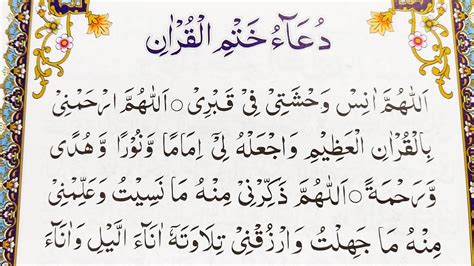 دُعَآءُ خَتْمِ الْقُرْاٰنِ
اَللّٰهُمَّ اٰنِسْ وَحْشَتِیْ فِیْ قَبْرِیْ ○ اَللّٰهُمَّ ارْحَمْنِیْ
بِالْقُرْاٰنِ الْعَظِیْمِ وَاجْعَلْهُ لِیْٓ اِمَامًا وَّنُوْرًا وَّهُدًی
وَّرَحْمَةً ○ اَللّٰهُمَّ ذَكِّرْنِیْ مِنْهُ مَا نَسِیْتُ وَعَلِّمْنِیْ
مِنْهُ مَا جَهِلْتُ وَارْزُقْنِیْ تِلَاوَتَهٗ اٰنَآءَ الَّیْلِ وَاٰنَآءَ